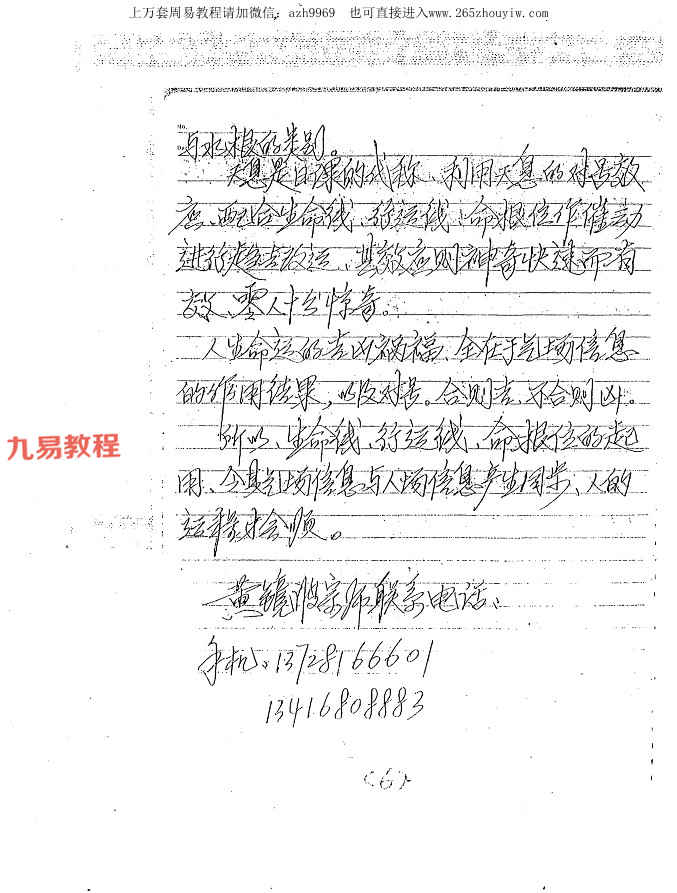 上万套周易教程请加微信：azh9969 也可直接进入www.265zhouyiw.com
与水根的类别。
天息是日课的代称、利用天息的对号效
应、配合生命线、行运线、命根位作催动
进行趋吉改运、其效应则神奇快速而有
效、零人十分惊奇。
人生命运的吉凶祸福、全在于气场信息
的作用结果，以及对号。合则吉、不合则凶。
九易教程
所以、生命线、行运线、命根位的起
用、令其气场信息与人场信息产生同步、人的
运程才会顺。
黄镜波宗师联系电话：
手机：13728166601
13416808883
（6）